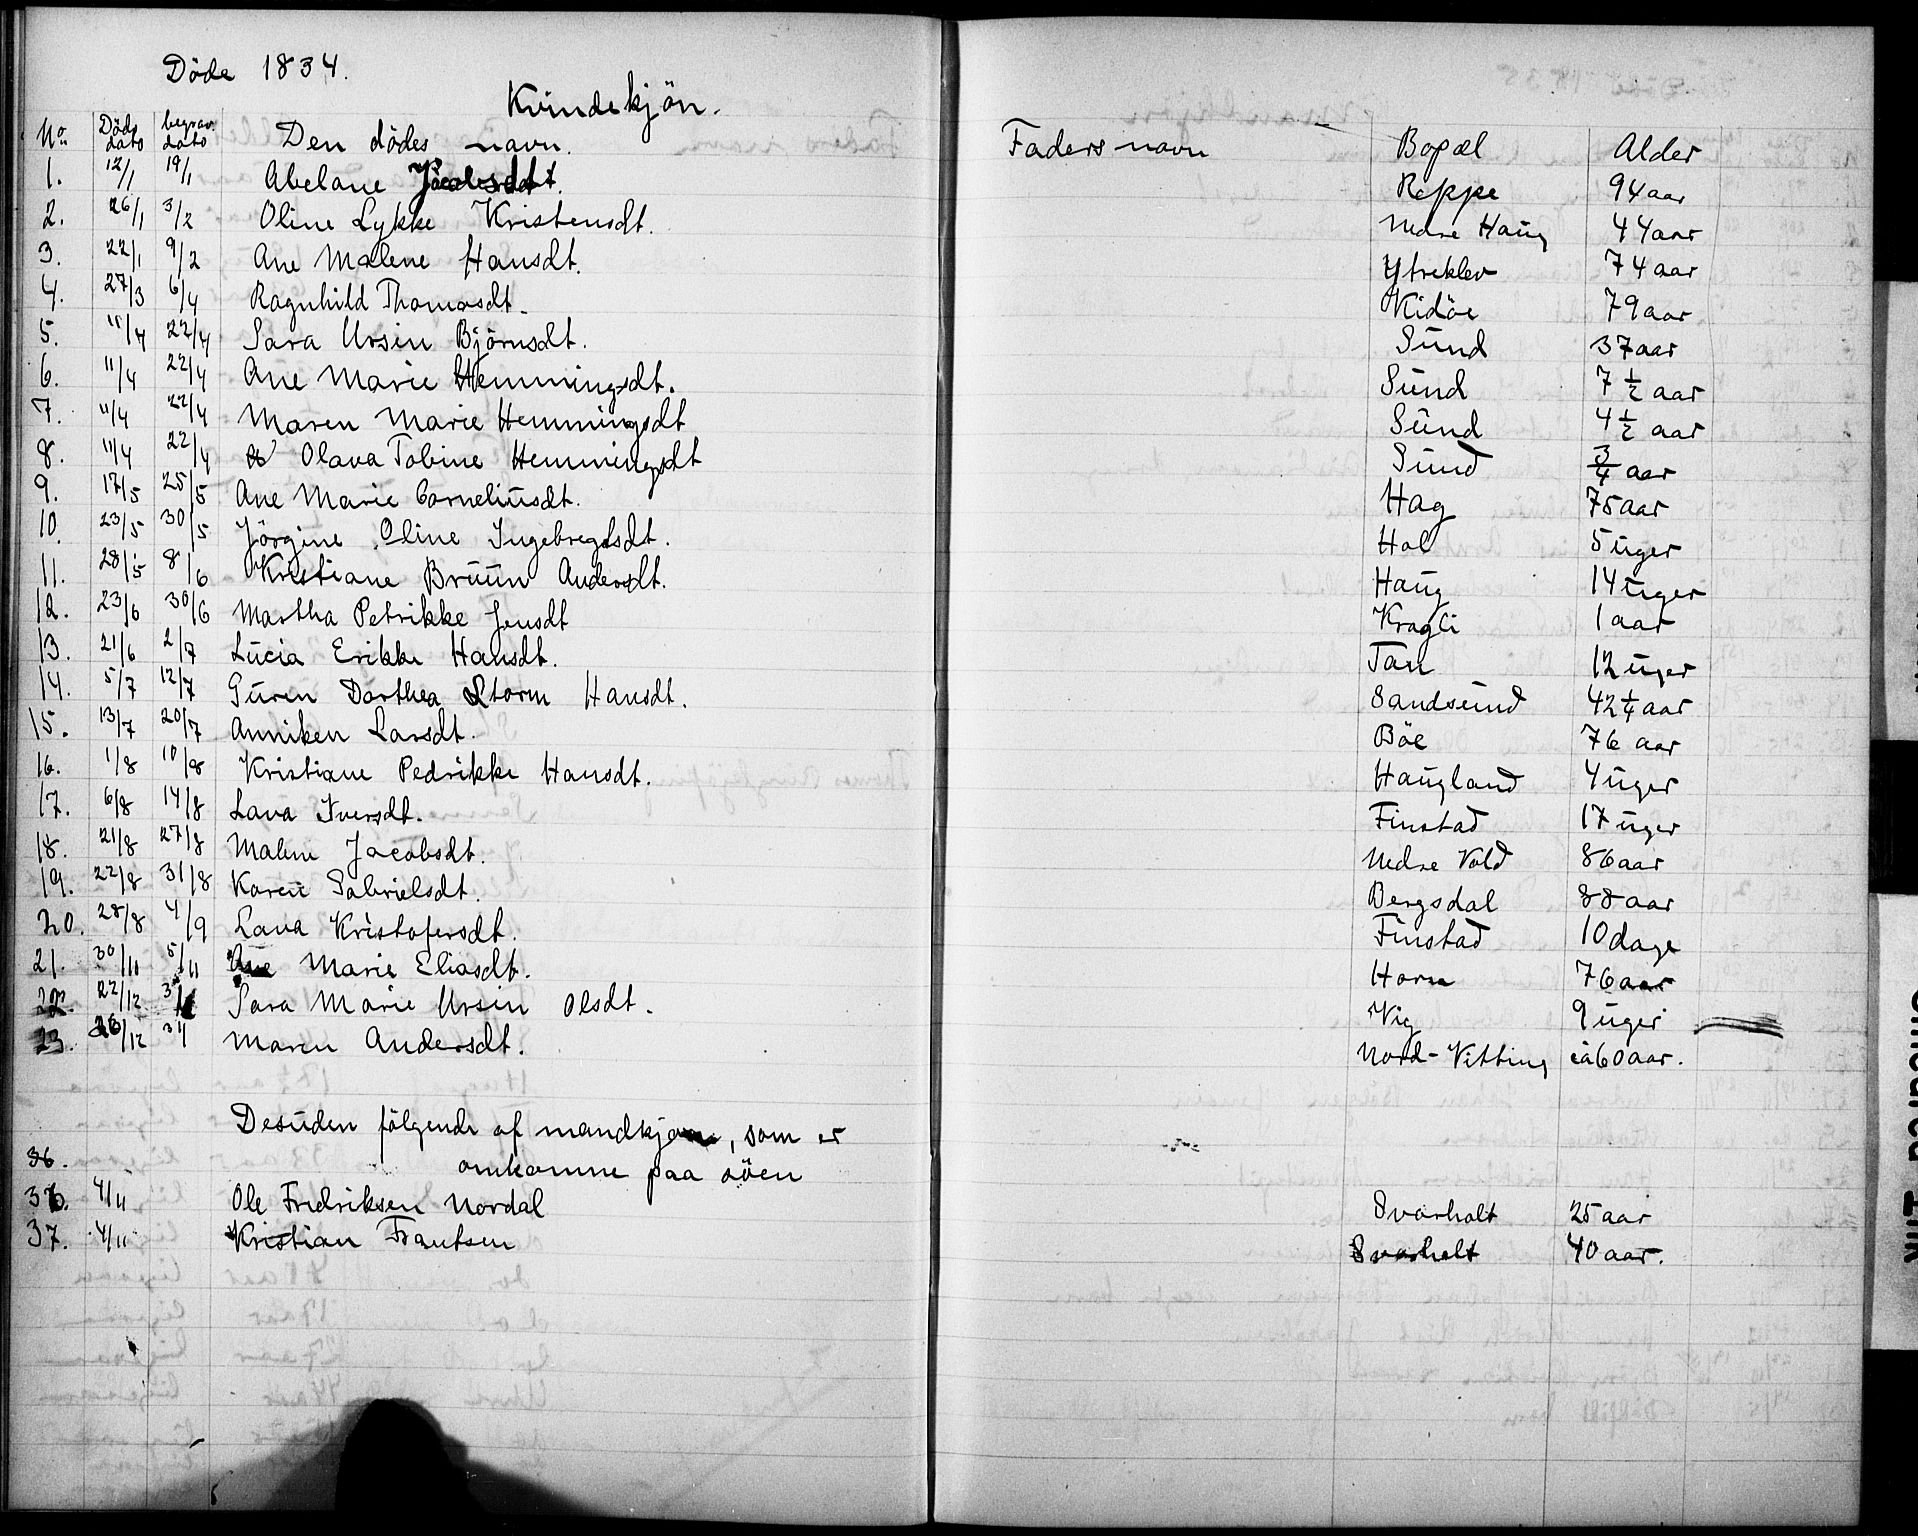 Döde 1834.
Kvindekjön.
No Döds dato begrav. dato Den dödes navn. Faders navn Bopæl Alder
1. 12/1 19/1 Abelane Jacobsdt. Reppe 94 aar
2. 26/1 3/2 Oline Lykke Kristensdt. Nedre Haug 44 aar
3. 22/1 9/2 Ane Malene Hansdt. Ytreklev 74 aar
4. 27/3 6/4 Ragnhild Thomasdt. Kidöe 79 aar
5. 11/4 22/4 Sara Ursin Björnsdt. Sund 37 aar
6. 11/4 22/4 Ane Marie Hemmingsdt. Sund 7 1/2 aar
7. 11/4 22/4 Maren Marie Hemmingsdt Sund 4 1/2 aar
8. 11/4 22/4 Olava Tobine Hemmingsdt Sund 3/4 aar
9. 17/5 25/5 Ane Marie Corneliusdt. Hag 75 aar
10. 23/5 30/5 Jörgine Oline Ingebregtsdt. Hol 5 uger
11. 28/5 8/6 Kristiane Bruun Andersdt. Haug 14 uger
12. 23/6 30/6 Martha Petrikke Jensdt Kragli 1 aar
13. 21/6 2/7 Lucia Erikke Hansdt. Tan 12 uger
14. 5/7 12/7 Guren Dorthea Storm Hansdt. Sandsund 42 1/4 aar
15. 13/7 20/7 Anniken Larsdt. Böe 76 aar
16. 1/8 10/8 Kristiane Pedrikke Hansdt. Haugland 4 uger
17. 6/8 14/8 Lava Iversdt. Finstad 17 uger
18. 21/8 27/8 Malene Jacobsdt. Nedre Vold 86 aar
19. 22/8 31/8 Karen Gabrielsdt. Bergsdal 88 aar
20. 28/8 4/9 Lava Kristofersdt. Finstad 10 dage
21. 30/11 5/11 Ane Marie Eliasdt. Horn 76 aar
22. 22/12 Sara Marie Ursin Olsdt. Vig 9 uger
23. /12 Maren Andersdt. Nord-Vitting ca 60 aar.
Desuden fölgende af mandkjön, som er
36. omkomne paa söen
36. 4/11 Ole Fredriksen Nordal Svarholt 25 aar
37. 4/11 Kristian Frantsen Svarholt 40 aar.